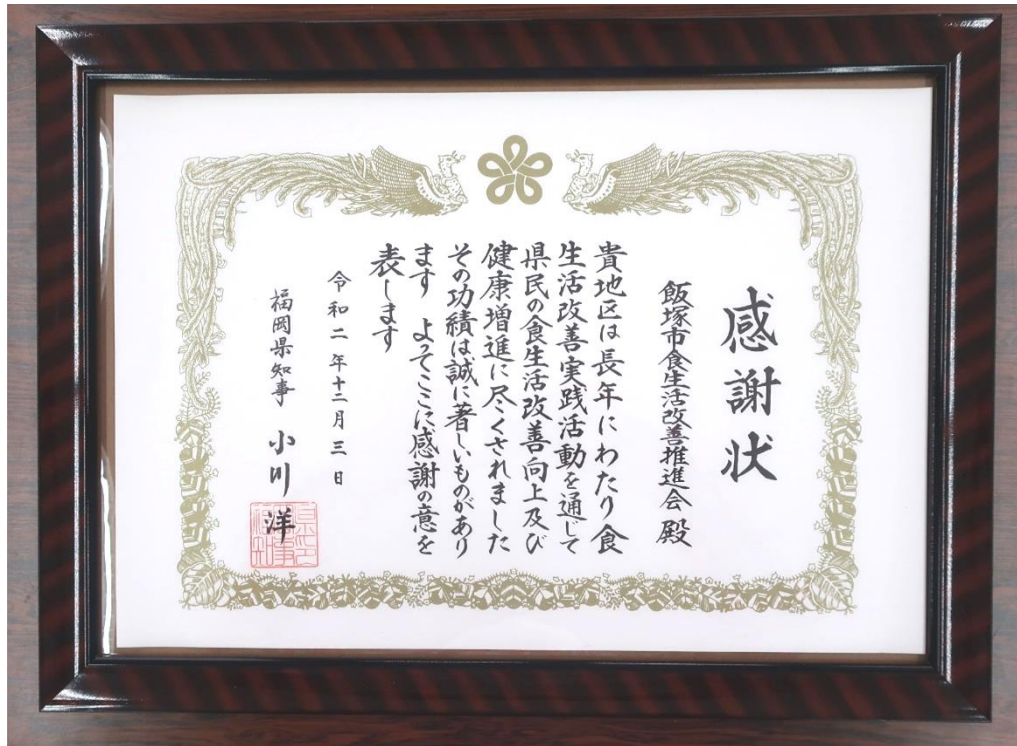 感謝状
飯塚市食生活改善推進会 殿
貴地区は長年にわたり食
生活改善実践活動を通じて
県民の食生活改善向上及び
健康増進に尽くされました
その功績は誠に著しいものがあり
ます よってここに感謝の意を
表します
令和二年十二月三日
福岡県知事 小川 洋